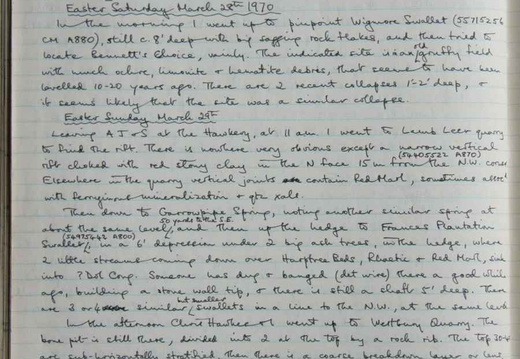 Easter Saturday March 28th 1970
In the morning I went up to pinpoint Wignors Swallet (55715256
CM A880), still c. 8' deep with big sagging rock flakes, and then tried to
locate Bennett's Choice, vainly. The indicated site is in an old gruffy field
with much ochre, limonite & hematite debris, that seems to have been
levelled 10-20 years ago. There are 2 recent collapses 1'-2' deep, &
it seems likely that the site was a similar collapse.
Easter Sunday March 29th
Leaving A J & S at the Hawkery, at 11 am I went to Lamb Leer quarry
to find the rift. There is nowhere very obvious except a narrow vertical
rift choked with red stony clay in the N face 15 m from the N.W. corner (54405522 A870)
Elsewhere in the quarry vertical joints contain Red Marl, sometimes
with ferruginous mineralization & qtz xals.
Then down to Garrowpipe Spring, noting another similar spring at
about the same level 50 yards to the S.E., and then up the hedge to Frances Plantation
Swallet (54925443 A800) in a 6' depression under 2 big ash trees, in the hedge, where
2 little streams coming down over Harptree Beds, Rhaetic & Red Marl, sink
into ? Dol Cong. Someone has dug & banged (det wire) there a good while
ago, building a stone wall tip, & there is still a shaft 5' deep. There
are 3 or 4 similar but smaller swallets in a line to the N.W., at the same level
In the afternoon Chris Hawkes & I went up to Westbury Quarry. The
bone pit is still there, divided into 2 at the top by a rock rib. The top
are sub-horizontally stratified, then there is a coarse breakdown layer or lens